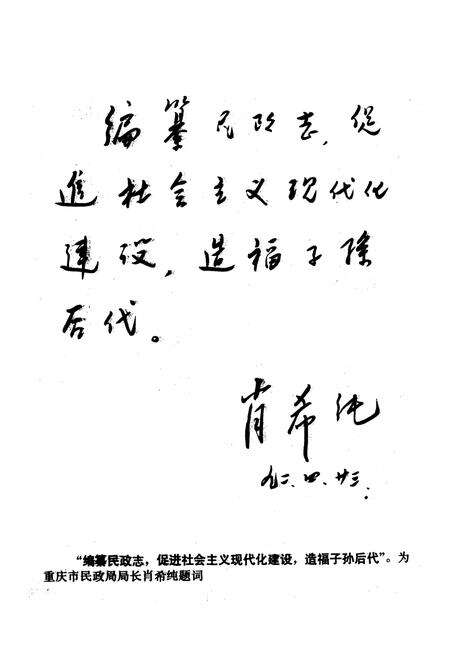 编纂民政志，促
进社会主义现代化
建设，造福子孙
后代。
肖希纯
九二.四.廿三.
“编纂民政志，促进社会主义现代化建设，造福子孙后代”。为
重庆市民政局局长肖希纯题词